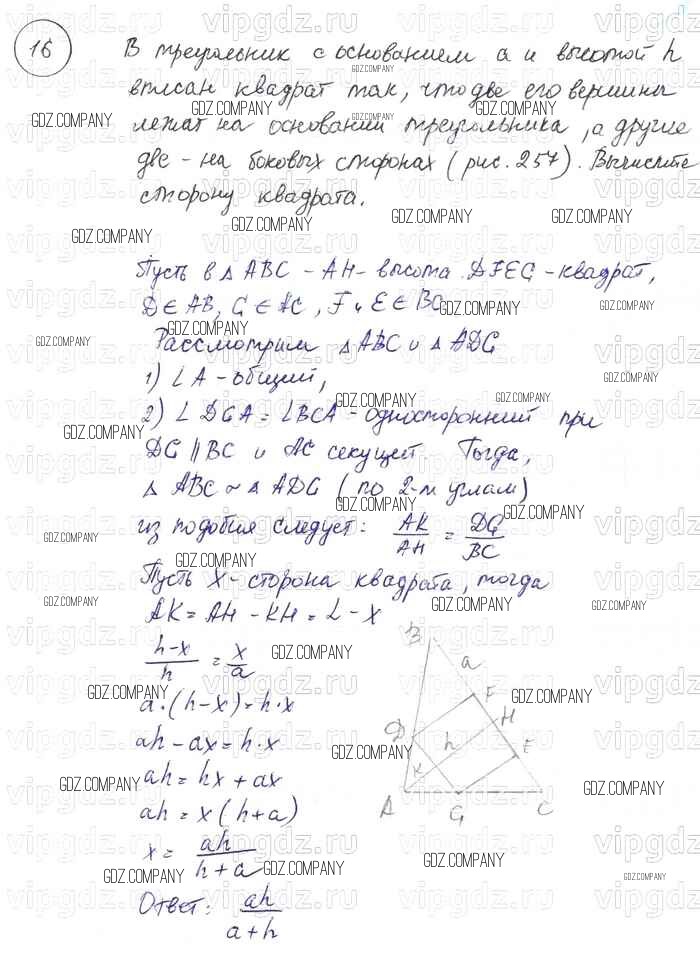 16 В треугольник с основанием a и высотой h
вписан квадрат так, что две его вершины
лежат на основании треугольника, а другие
две - на боковых сторонах (рис. 257). Вычислите
сторону квадрата.
Пусть в △ ABC - AH - высота. DFEG - квадрат,
D ∈ AB, G ∈ AC, F и E ∈ BC
Рассмотрим △ ABC и △ ADG
1) ∠ A - общий,
2) ∠ DGA = ∠BCA - односторонний при
DG ∥ BC и AC секущей. Тогда,
△ ABC ~ △ ADG (по 2-м углам)
из подобия следует: AK/AH = DG/BC
Пусть X - сторона квадрата, тогда
AK = AH - KH = L - X
(h-x)/h = x/a
a·(h-x)=h·x
ah-ax=h·x
ah = hx + ax
ah = x(h+a)
x = ah/(h+a)
Ответ: ah/(a+h)
B
a
F
H
D
h
E
K
A
G
C
GDZ.COMPANY
vipgdz.ru